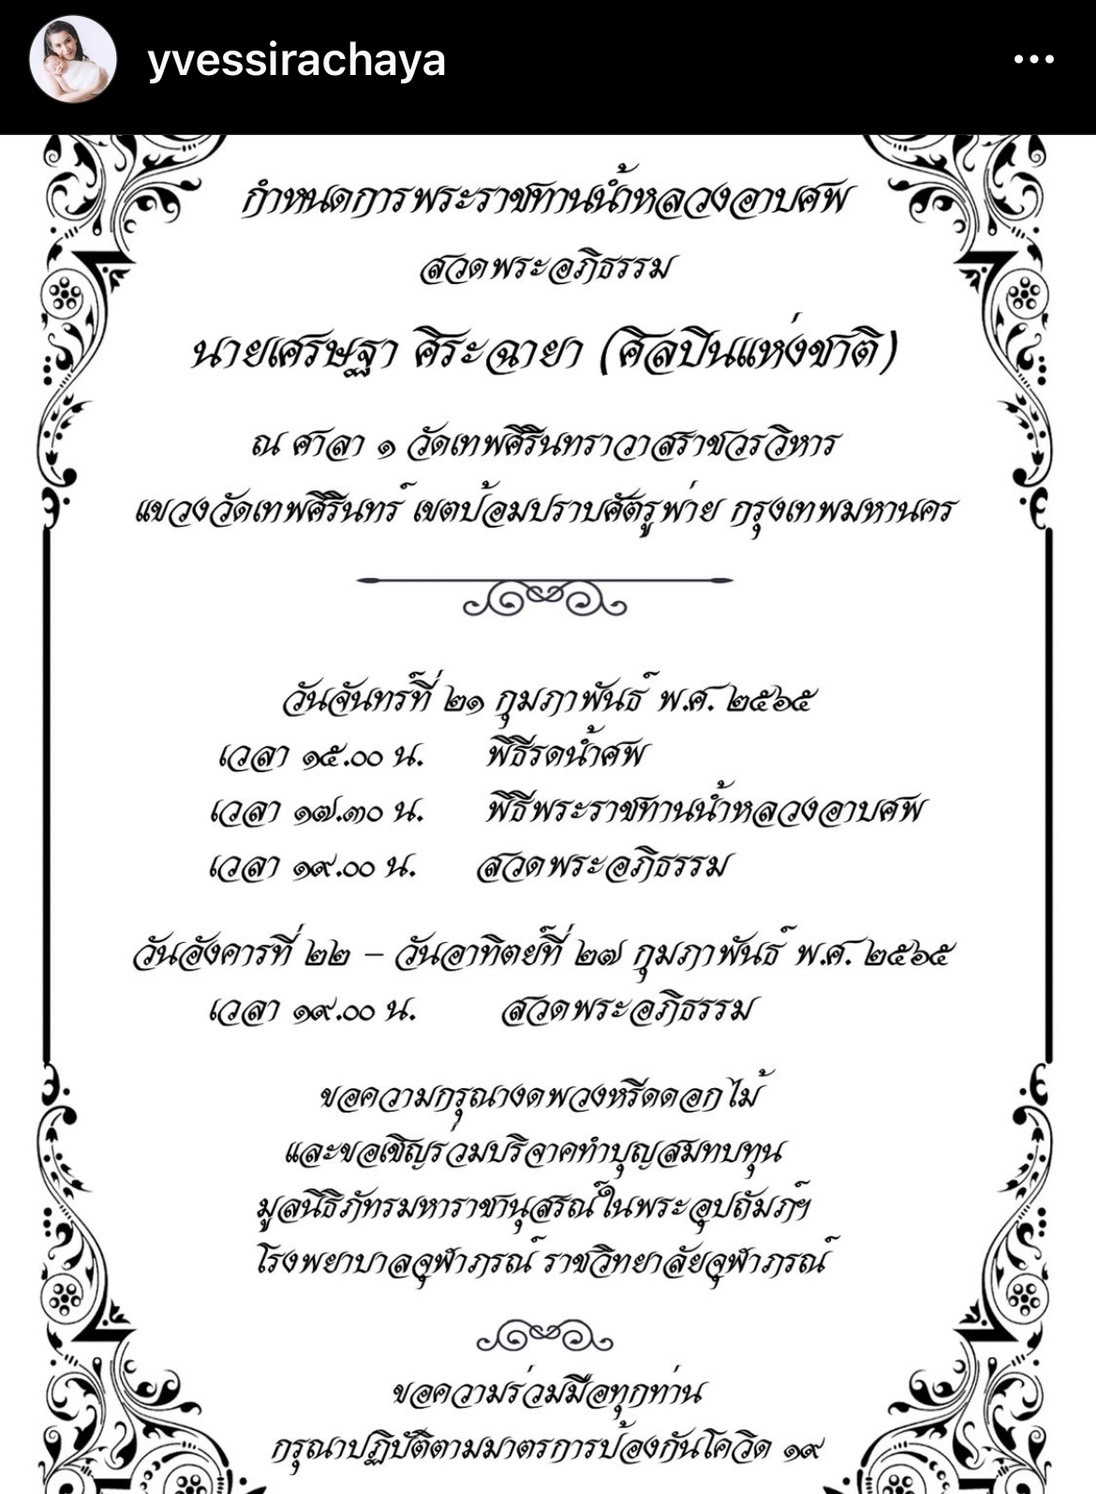 yvessirachaya
กำหนดการพระราชทานน้ำหลวงอาบศพ
สวดพระอภิธรรม
นายเศรษฐา ศิระฉายา (ศิลปินแห่งชาติ)
ณ ศาลา ๑ วัดเทพศิรินทราวาสราชวรวิหาร
แขวงวัดเทพศิรินทร์ เขตป้อมปราบศัตรูพ่าย กรุงเทพมหานคร
วันจันทร์ที่ ๒๑ กุมภาพันธ์ พ.ศ. ๒๕๖๕
เวลา ๑๕.๐๐ น. พิธีรดน้ำศพ
เวลา ๑๗.๓๐ น. พิธีพระราชทานน้ำหลวงอาบศพ
เวลา ๑๙.๐๐ น. สวดพระอภิธรรม
วันอังคารที่ ๒๒ – วันอาทิตย์ที่ ๒๗ กุมภาพันธ์ พ.ศ. ๒๕๖๕
เวลา ๑๙.๐๐ น. สวดพระอภิธรรม
ขอความกรุณางดพวงหรีดดอกไม้
และขอเชิญร่วมบริจาคทำบุญสมทบทุน
มูลนิธิภัทรมหาราชานุสรณ์ในพระอุปถัมภ์ฯ
โรงพยาบาลจุฬาภรณ์ ราชวิทยาลัยจุฬาภรณ์
ขอความร่วมมือทุกท่าน
กรุณาปฏิบัติตามมาตรการป้องกันโควิด ๑๙